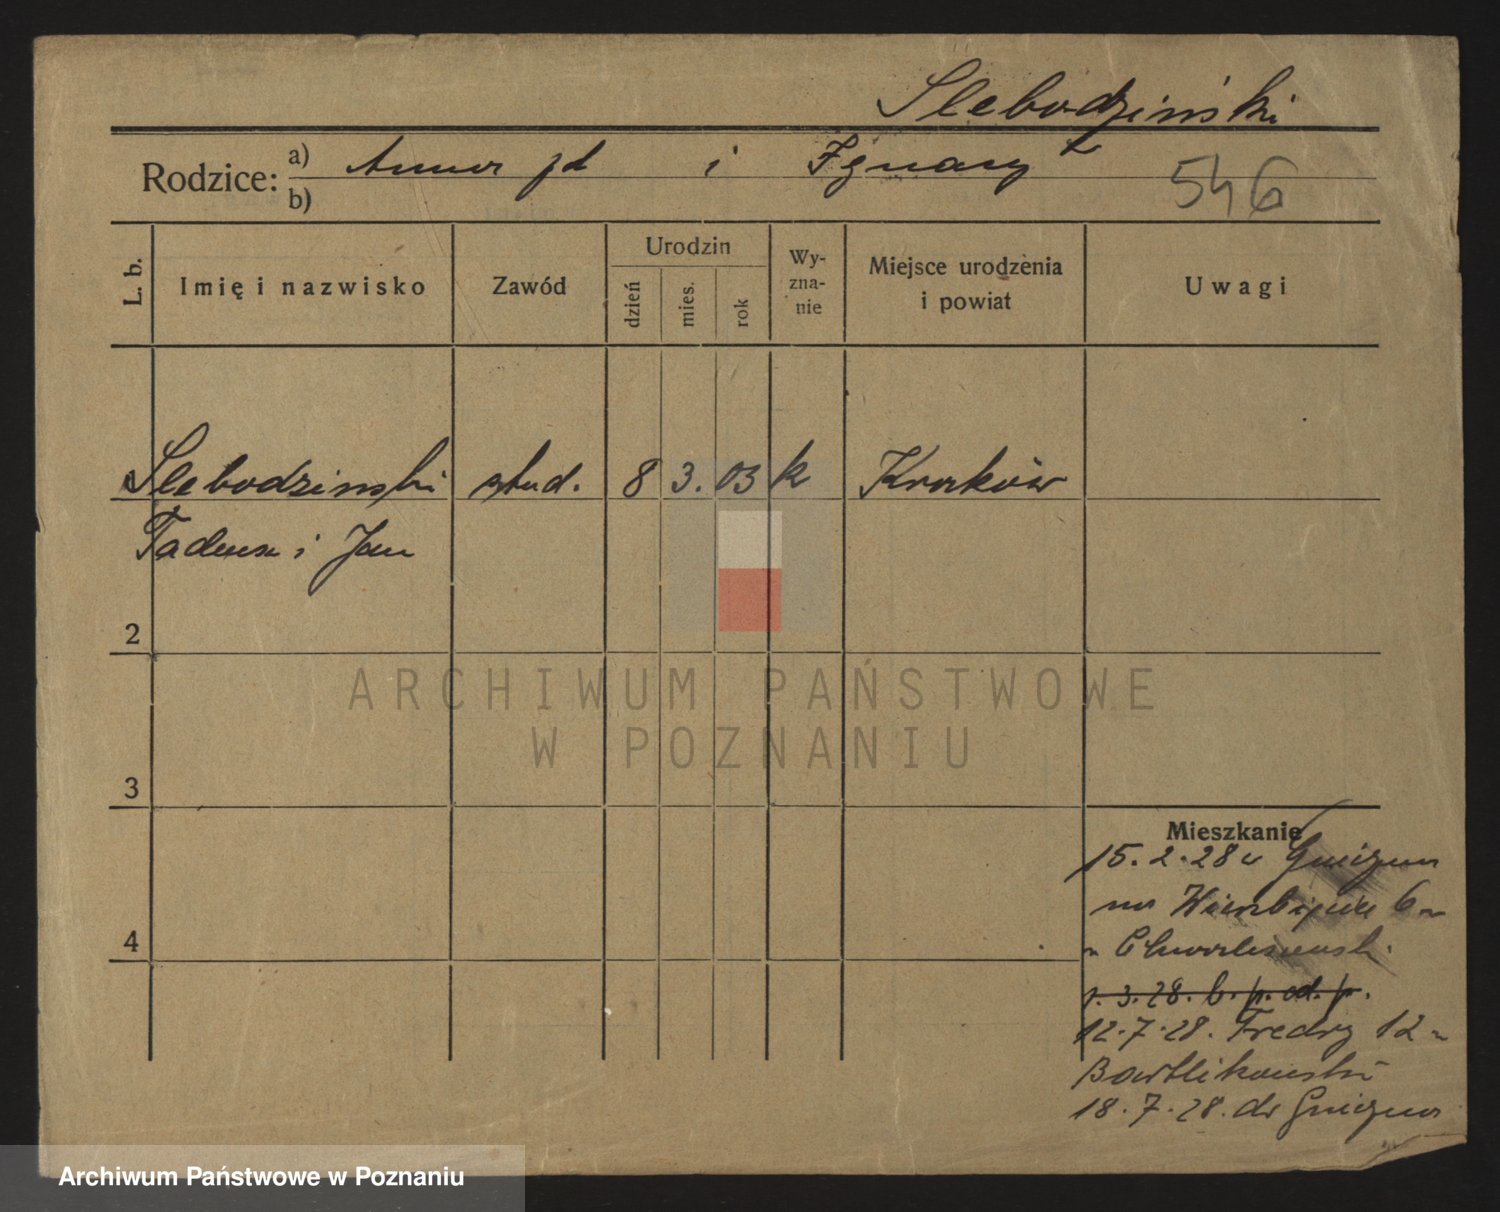 Slebodziński
Rodzice: a) Anna zd i Ignacy
b)
546
L. b.
Imię i nazwisko
Zawód
Urodzin
dzień
mies.
rok
Wy-
zna-
nie
Miejsce urodzenia
i powiat
Uwagi
Slebodzinski stud. 8 3. 03 k Kraków
Tadeusz i Jan
2
3
4
Mieszkanie
15. 2. 28 Gniezna
na 6
1. 3. 28. b. p. od. p.
12. 7. 28. Fredry 12
Bartlikowski
18. 7. 28. do Gniezna
ARCHIWUM PAŃSTWOWE
W POZNANIU
Archiwum Państwowe w Poznaniu